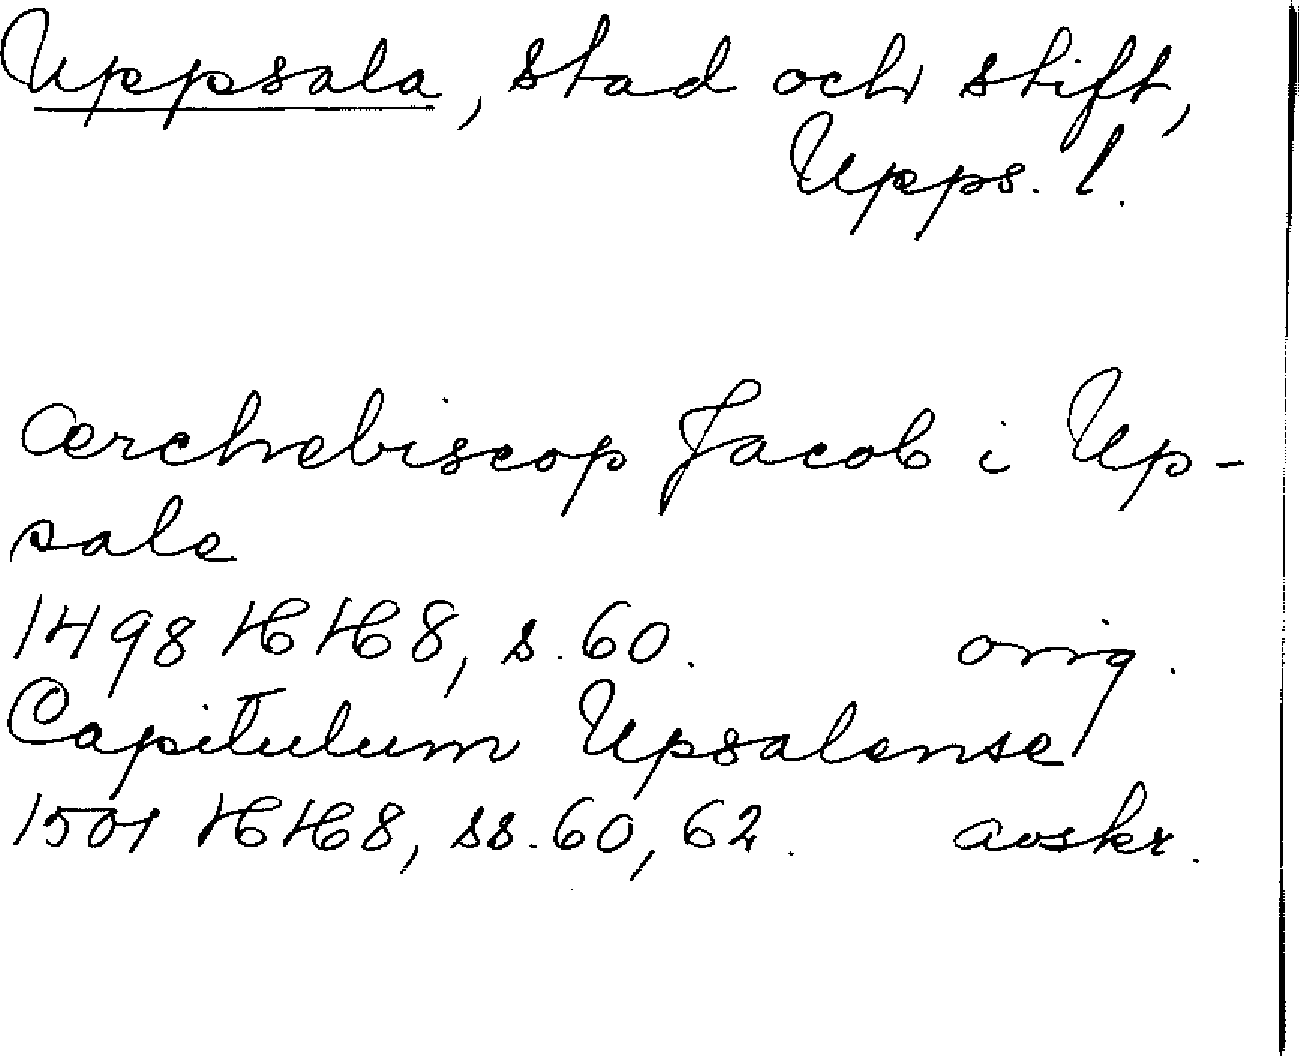 Uppsala, stad och stift,
Upps. l.
ærchebiscop Jacob i Up-
sale
1498 HH8, s. 60. orig.
Capitulum Upsalense
1501 HH8, ss. 60, 62. avskr.